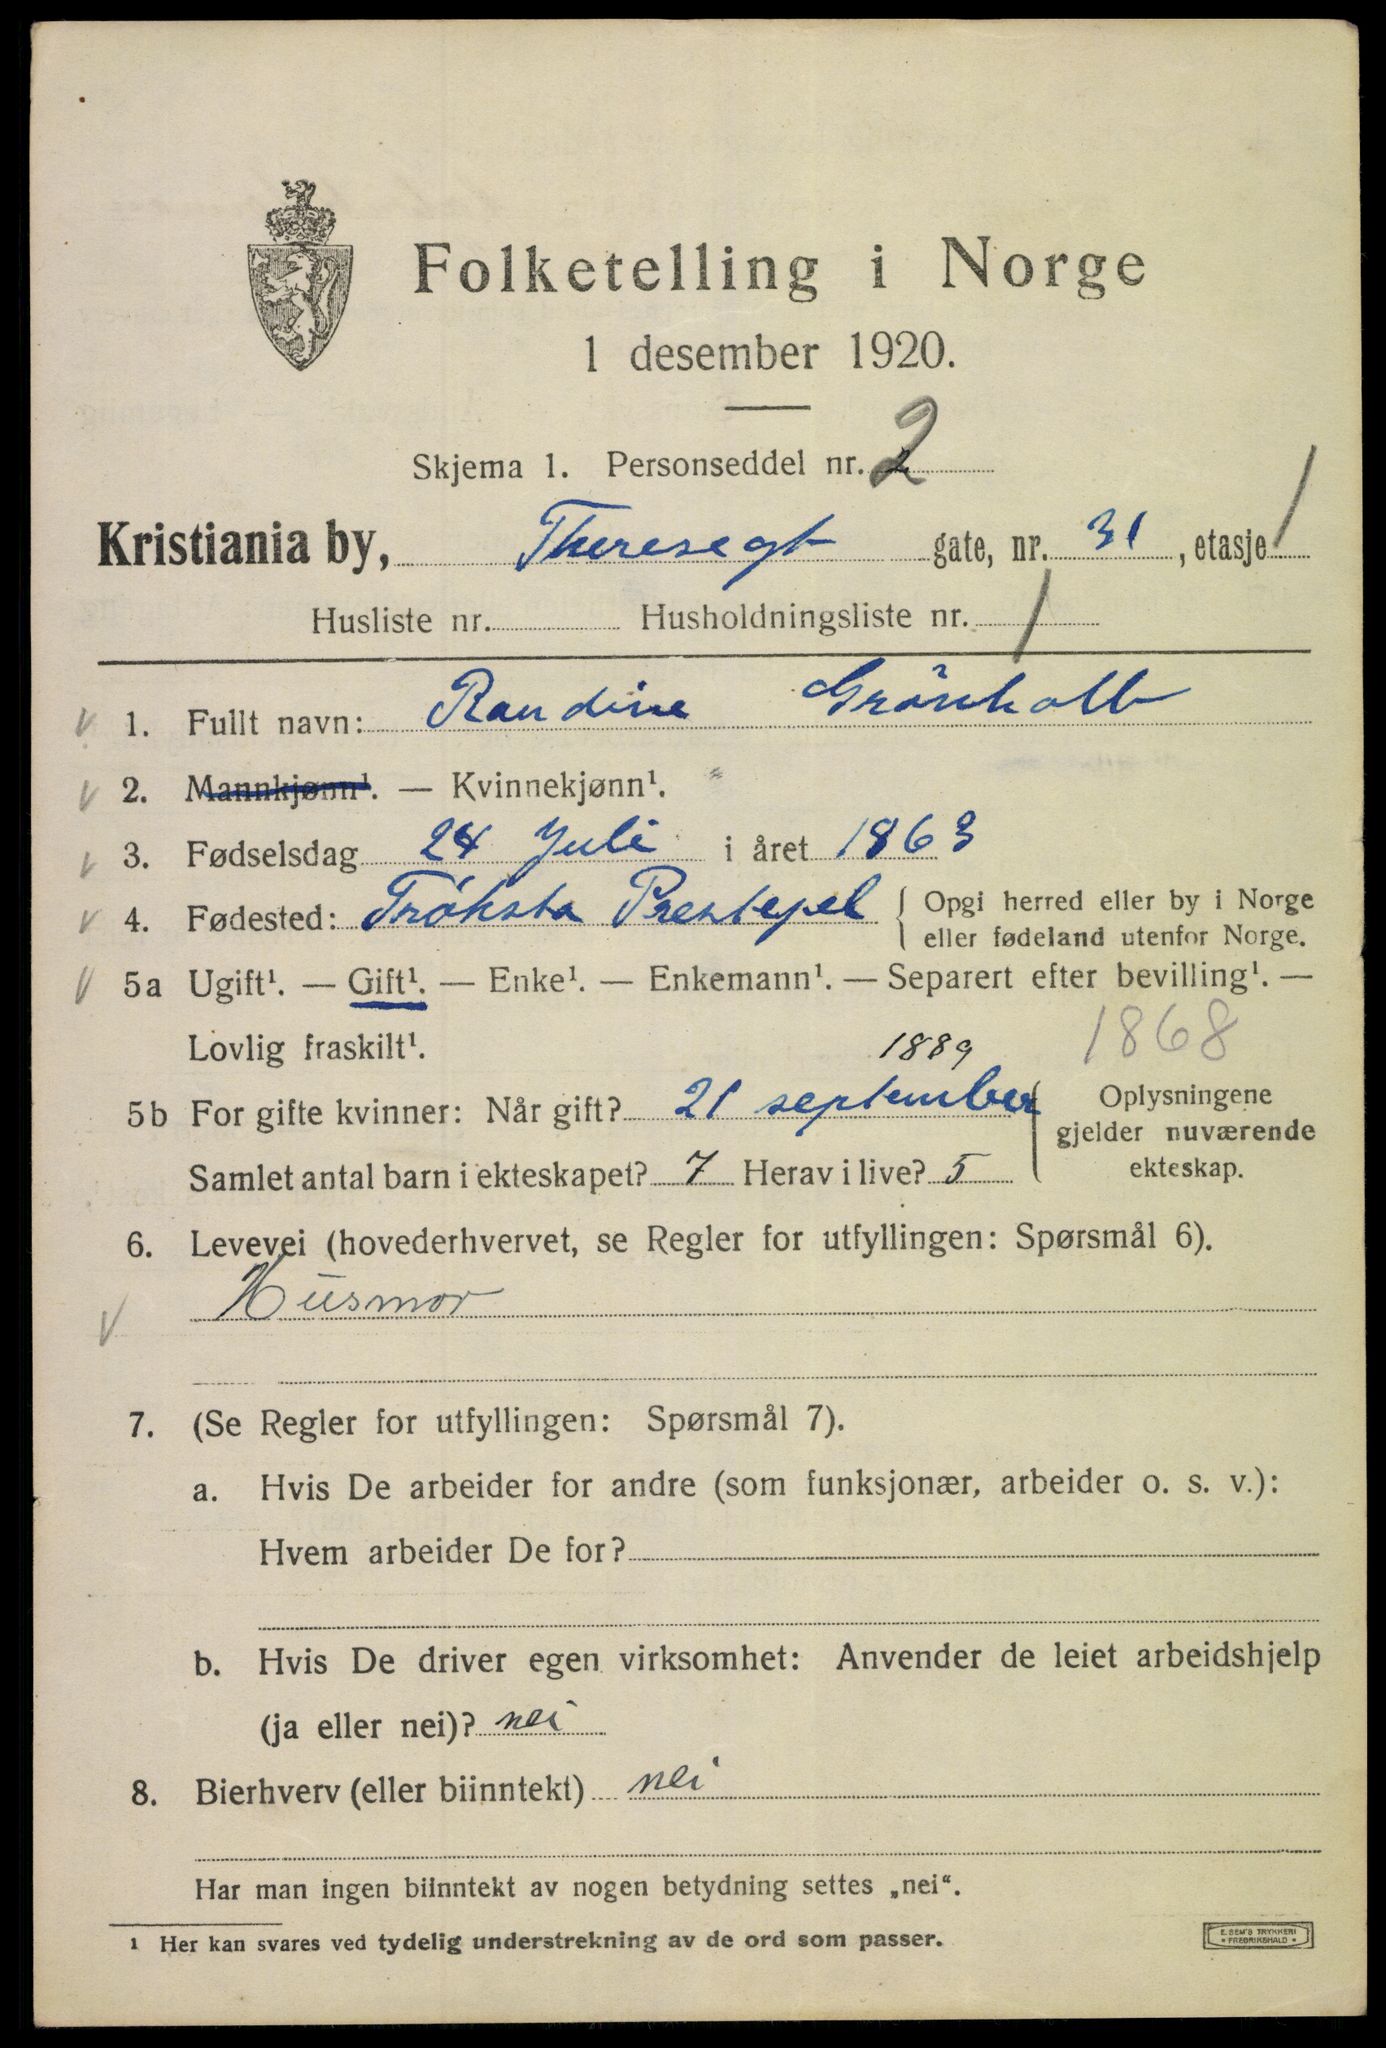 Folketelling i Norge
1 desember 1920.
Skjema 1. Personseddel nr. 2
Kristiania by, Theresegt gate, nr. 31, etasje 1
Husliste nr. Husholdningsliste nr. 1
1. Fullt navn: Randine Grönholt
2. Mannkjønn¹. — Kvinnekjønn¹.
3. Fødselsdag 24 Juli i året 1863
4. Fødested: Trøksta Prestejel { Opgi herred eller by i Norge
eller fødeland utenfor Norge.
5a Ugift¹. — Gift¹. — Enke¹. — Enkemann¹. — Separert efter bevilling¹. —
Lovlig fraskilt¹. 1889 1868
5b For gifte kvinner: Når gift? 21 september
Samlet antal barn i ekteskapet? 7 Herav i live? 5
Oplysningene
gjelder nuværende
ekteskap.
6. Levevei (hovederhvervet, se Regler for utfyllingen: Spørsmål 6).
Husmor
7. (Se Regler for utfyllingen: Spørsmål 7).
a. Hvis De arbeider for andre (som funksjonær, arbeider o. s. v.):
Hvem arbeider De for?
b. Hvis De driver egen virksomhet: Anvender de leiet arbeidshjelp
(ja eller nei)? nei
8. Bierhverv (eller biinntekt) nei
Har man ingen biinntekt av nogen betydning settes „nei“.
¹ Her kan svares ved tydelig understrekning av de ord som passer.
E. SEM'S TRYKKERI
* FREDRIKSHALD *